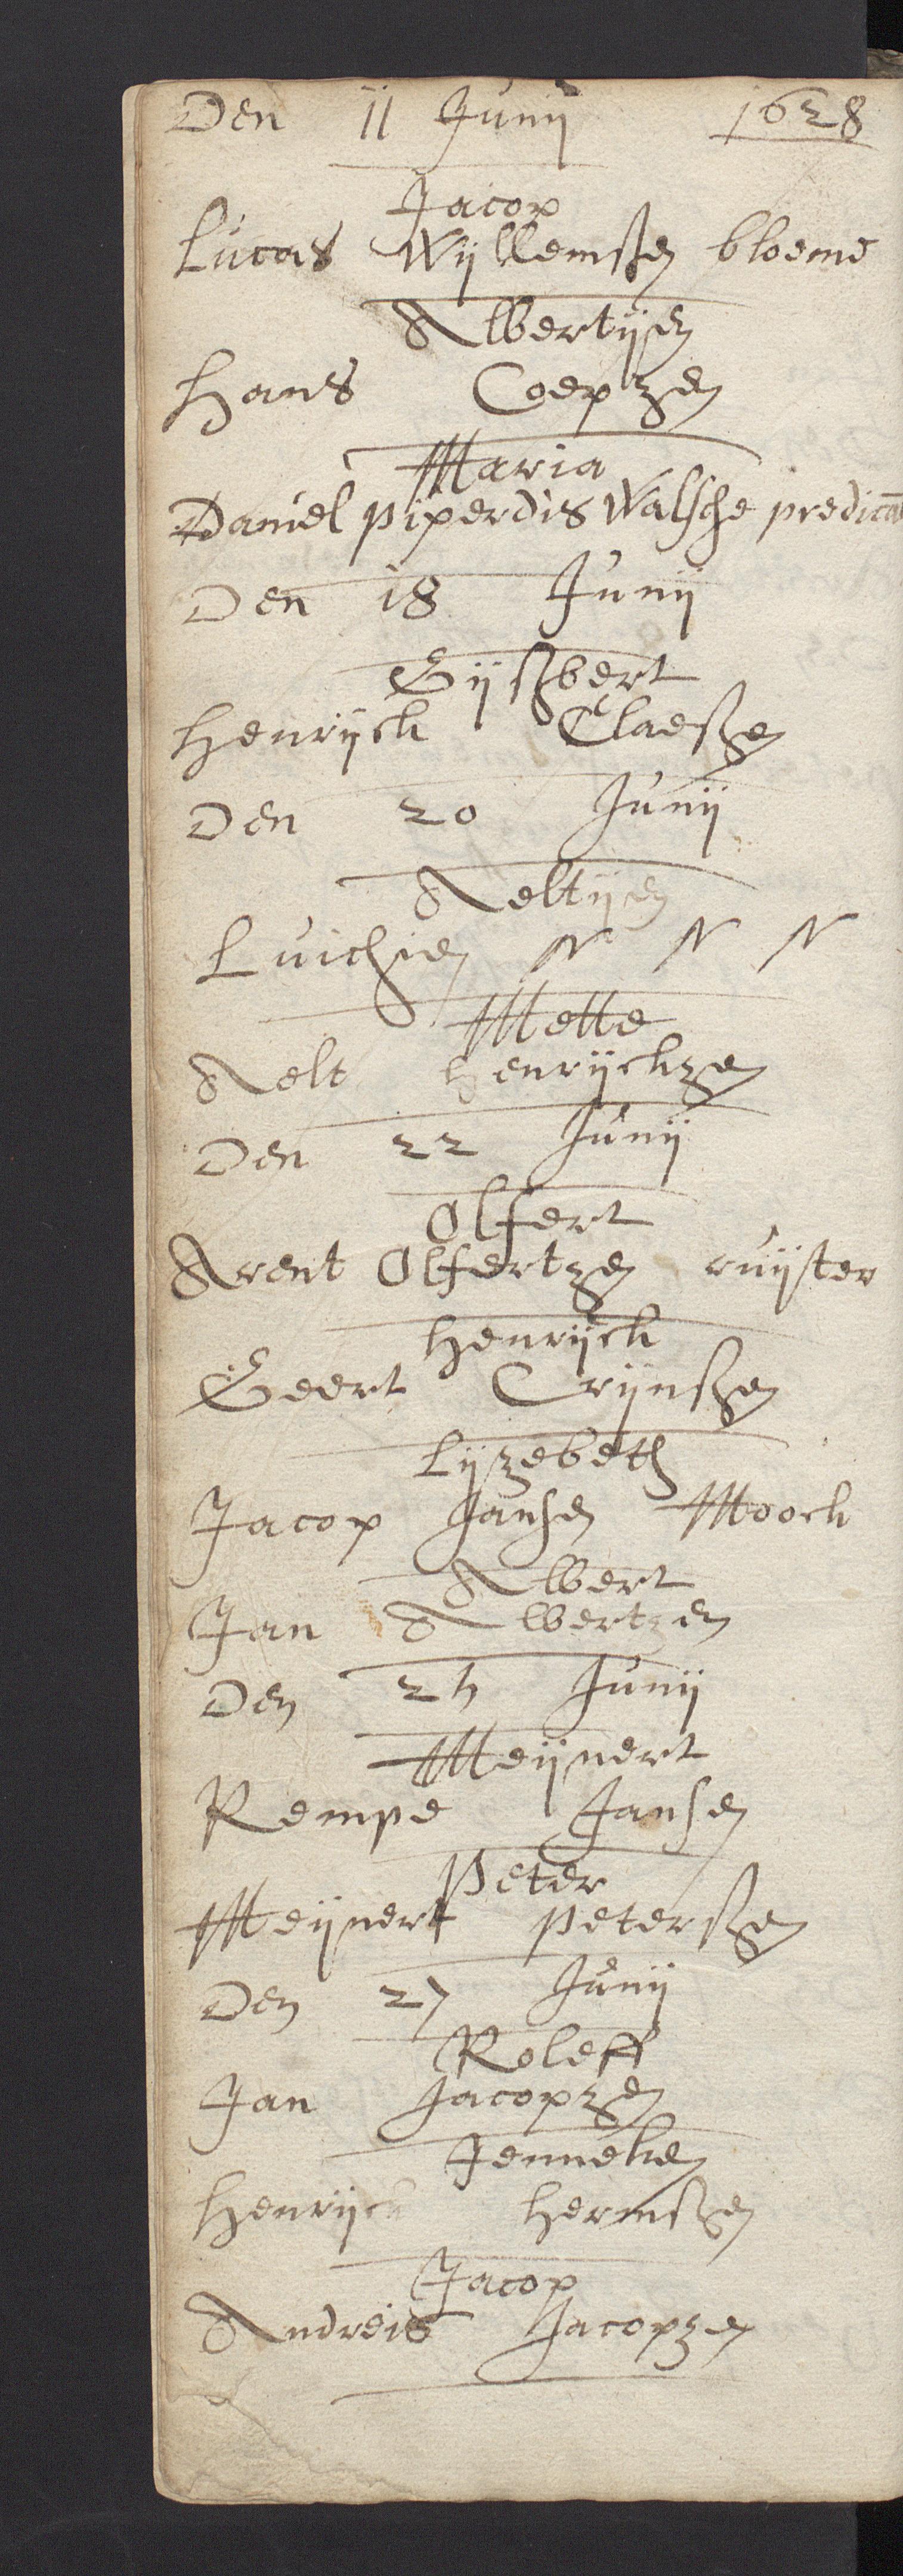 Den 11 Junij 1628
Jacop
Lucas Wijllemssen bloeme
Albertijen
Hans Coepzen
Maria
Daniel piperdis Walsche predica
Den 18 Junij
Gijssbert
Henrijck Claessen
Den 20 Junij
Aeltijen
Luichien N N N
Mette
Aelt henrijckzen
Den 22 Junij
Olfert
Arent Olfertzen ruijter
Henrijck
Geert Crijnssen
Lijzebeth
Jacop Jansen Moock
Albert
Jan Albertzen
Den 25 Junij
Meijnert
Rempe Jansen
Peter
Meijnert Peterssen
Den 27 Junij
Roleff
Jan Jacopzen
Jenneken
Henrijck hermssen
Jacop
Andreis Jacopzen